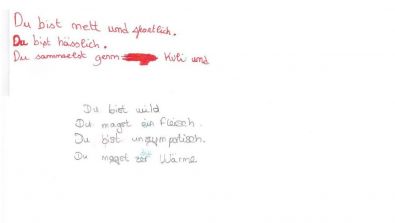 Du bist nett und sportlich.
Du bist hässlich.
Du sammelst gern Kuli und
Du bist wild
Du magst ein Fleisch.
Du bist unsympatisch.
Du magst die Wärme.